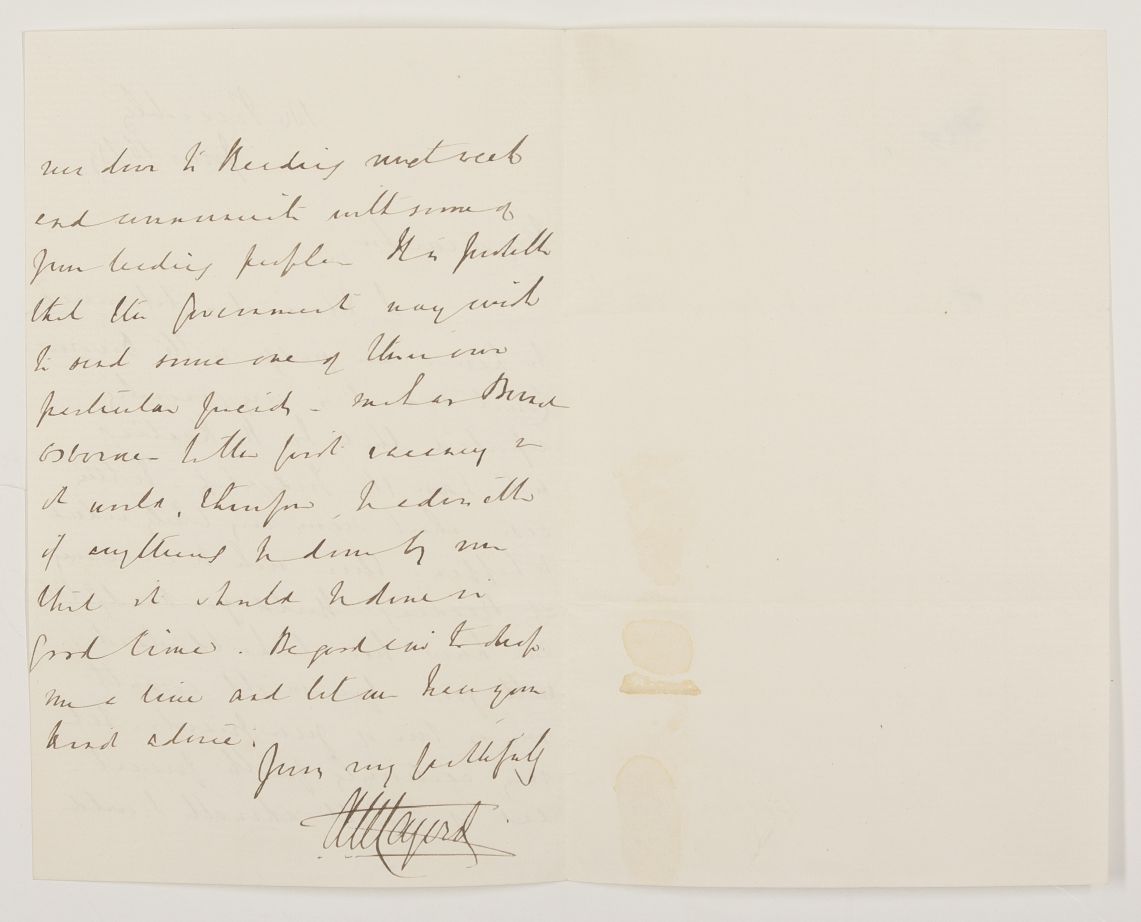 run down to Reading next week
and communicate with some of
your leading people. It is probable
that the Government may wish
to send some one of their own
particular friends - such as Bernal
Osborne - to the first vacancy &
it would, therefore, be desirable
if anything be done by me
that it should be done in
good time. Be good enough to drop
me a line and let me have your
kind advice.
Yours very faithfully